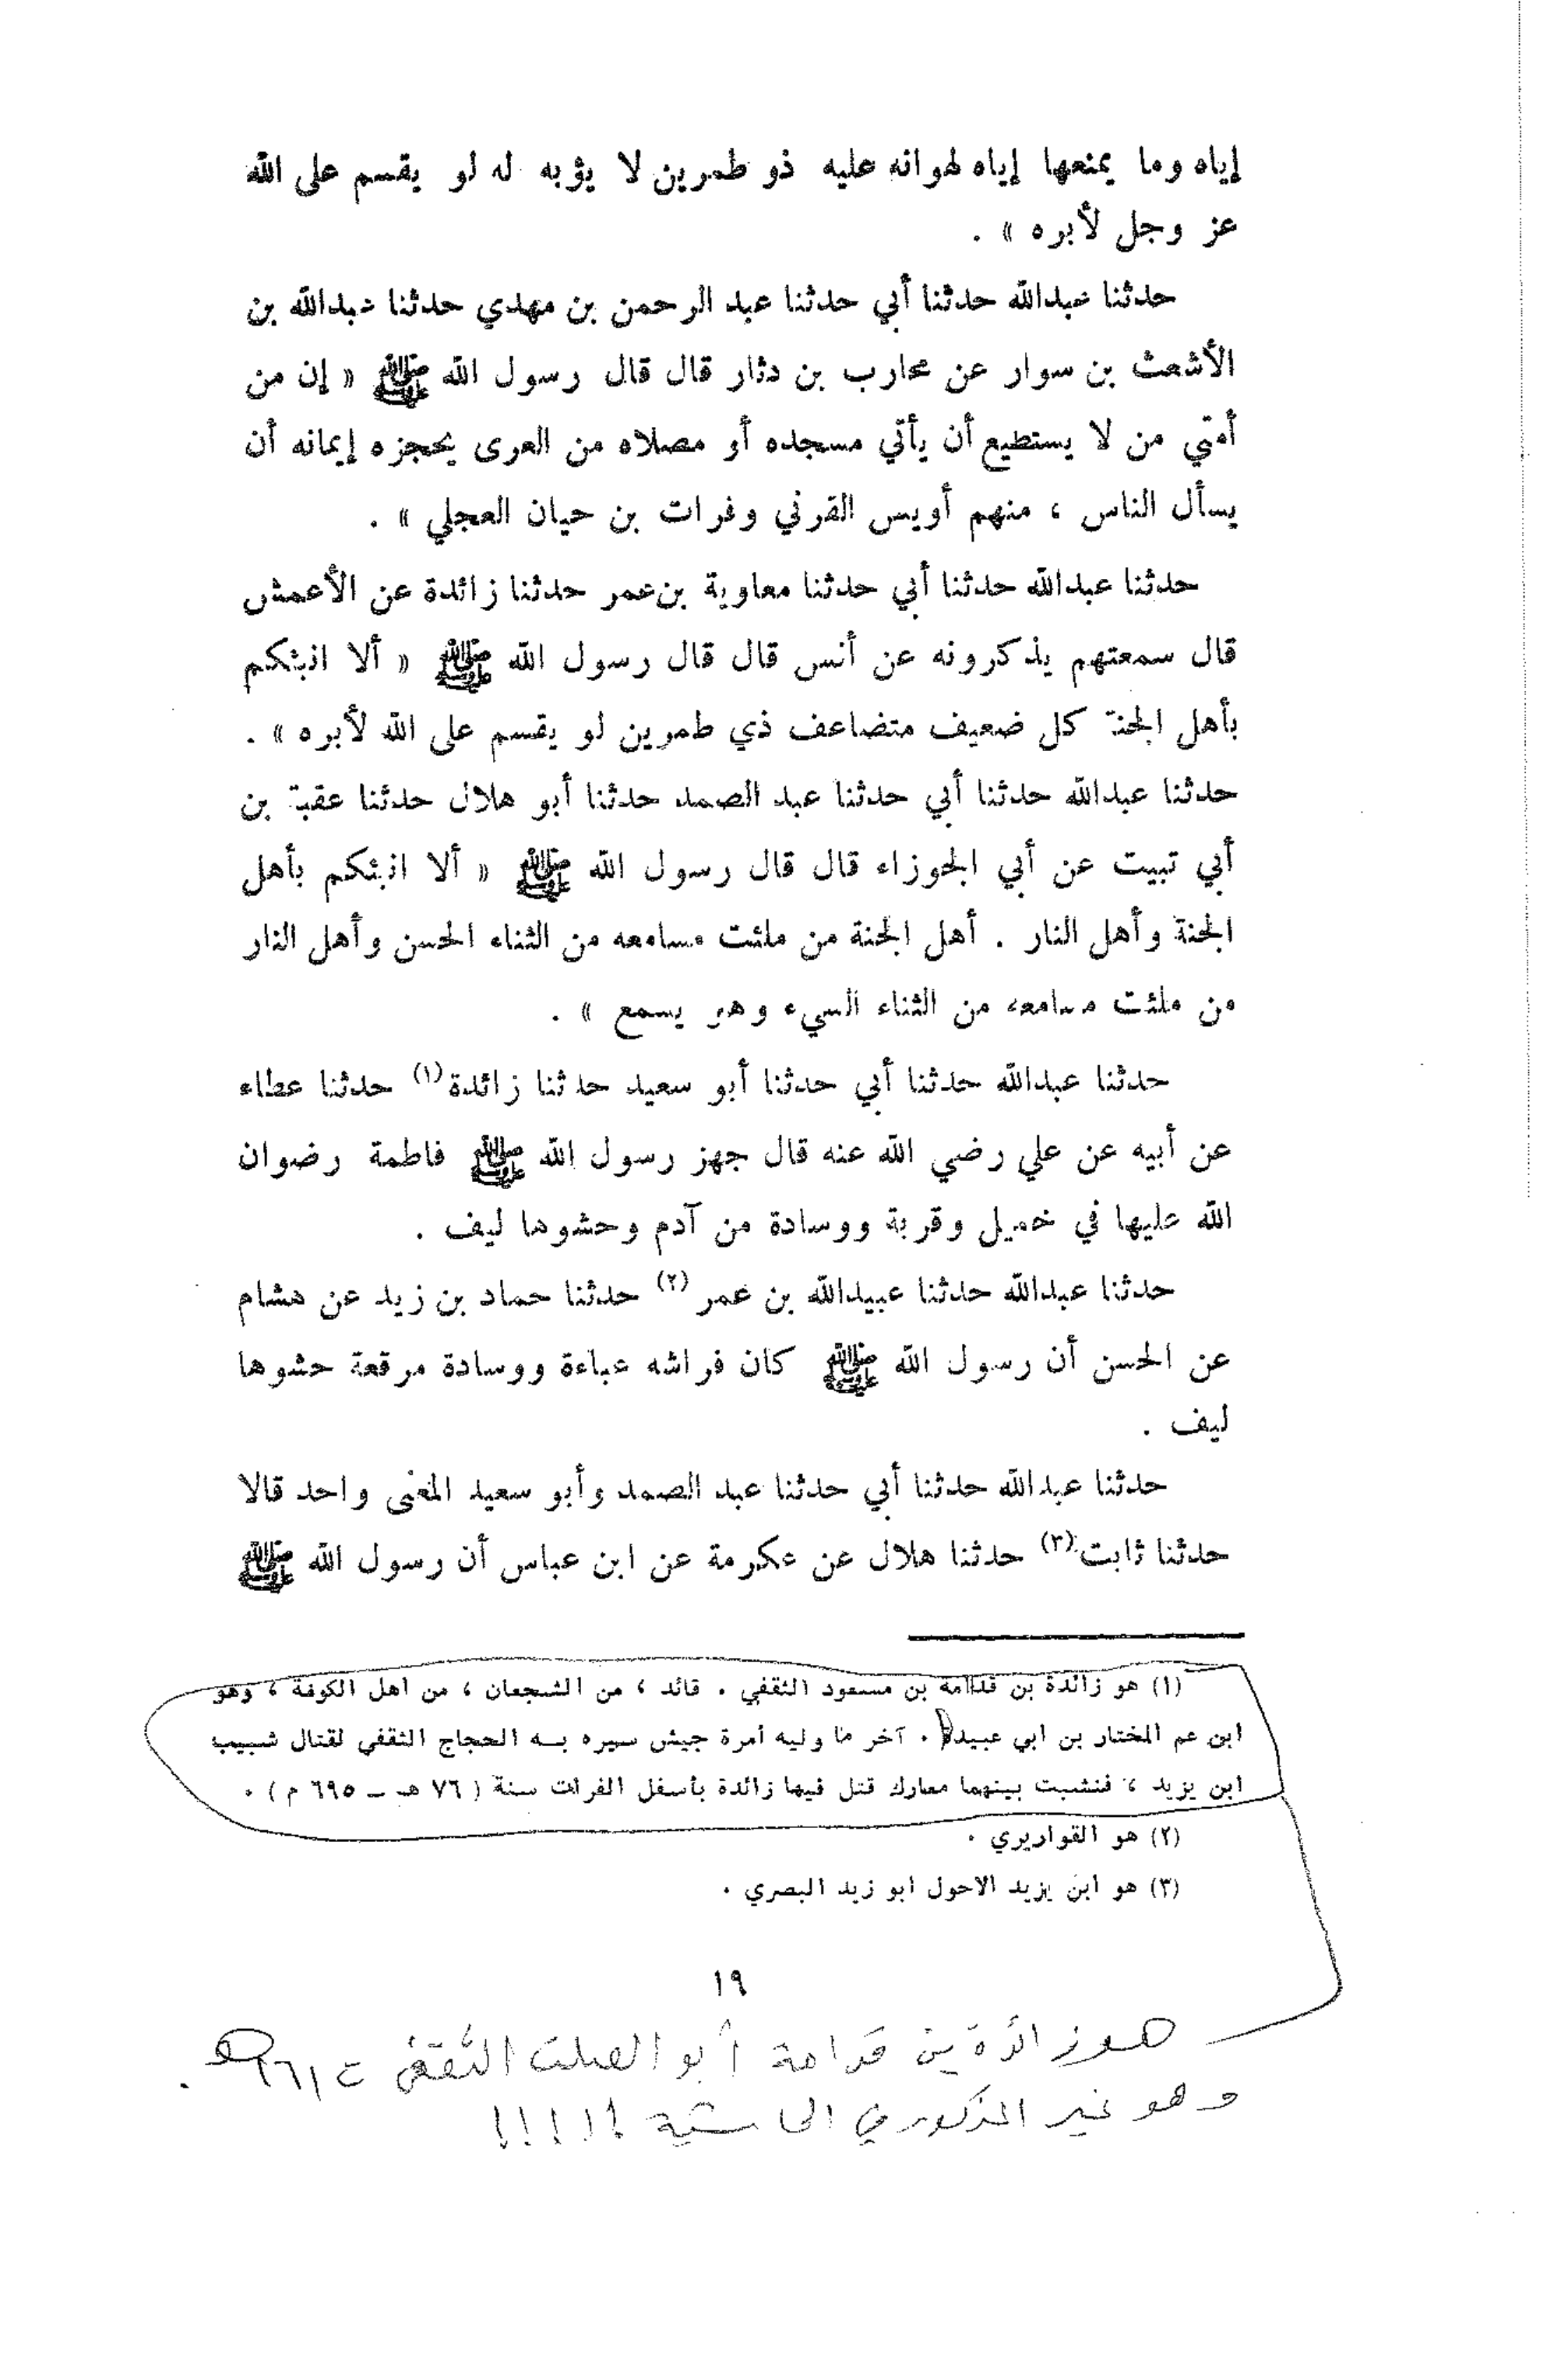 إياه وما يمنعها إياه لهوانه عليه ذو طمرين لا يؤبه له لو يقسم على الله
عز وجل لأبره » .
حدثنا عبدالله حدثنا أبي حدثنا عبد الرحمن بن مهدي حدثنا عبدالله بن
الأشعث بن سوار عن محارب بن دثار قال قال رسول الله ﷺ « إن من
أمتي من لا يستطيع أن يأتي مسجده أو مصلاه من العرى يحجزه إيمانه أن
يسأل الناس ، منهم أويس القرني وفرات بن حيان العجلي » .
حدثنا عبدالله حدثنا أبي حدثنا معاوية بن عمر حدثنا زائدة عن الأعمش
قال سمعتهم يذكرونه عن أنس قال قال رسول الله ﷺ « ألا انبئكم
بأهل الجنة كل ضعيف متضاعف ذي طمرين لو يقسم على الله لأبره » .
حدثنا عبدالله حدثنا أبي حدثنا عبد الصمد حدثنا أبو هلال حدثنا عقبة بن
أبي تبيت عن أبي الجوزاء قال قال رسول الله ﷺ « ألا انبئكم بأهل
الجنة وأهل النار . أهل الجنة من ملئت مسامعه من الثناء الحسن وأهل النار
من ملئت مسامعه من الثناء السيء وهو يسمع » .
حدثنا عبدالله حدثنا أبي حدثنا أبو سعيد حدثنا زائدة (١) حدثنا عطاء
عن أبيه عن علي رضي الله عنه قال جهز رسول الله ﷺ فاطمة رضوان
الله عليها في خميل وقربة ووسادة من آدم وحشوها ليف .
حدثنا عبدالله حدثنا عبيدالله بن عمر (٢) حدثنا حماد بن زيد عن هشام
عن الحسن أن رسول الله ﷺ كان فراشه عباءة ووسادة مرقعة حشوها
ليف .
حدثنا عبدالله حدثنا أبي حدثنا عبد الصمد وأبو سعيد المعنى واحد قالا
حدثنا ثابت (٣) حدثنا هلال عن عكرمة عن ابن عباس أن رسول الله ﷺ
(١) هو زائدة بن قدامة بن مسعود الثقفي . قائد ، من الشجعان ، من اهل الكوفة ، وهو
ابن عم المختار بن ابي عبيد . آخر ما وليه امرة جيش سيره به الحجاج الثقفي لقتال شبيب
ابن يزيد ، فنشبت بينهما معارك قتل فيها زائدة بأسفل الفرات سنة ( ٧٦ هـ ــ ٦٩٥ م ) .
(٢) هو القواريري .
(٣) هو ابن يزيد الاحول ابو زيد البصري .
١٩
هو زائدة بن قدامة أبو الصلت الثقفي ت ١٦١هـ .
وهو غير المذكور في الحاشية !!!!!